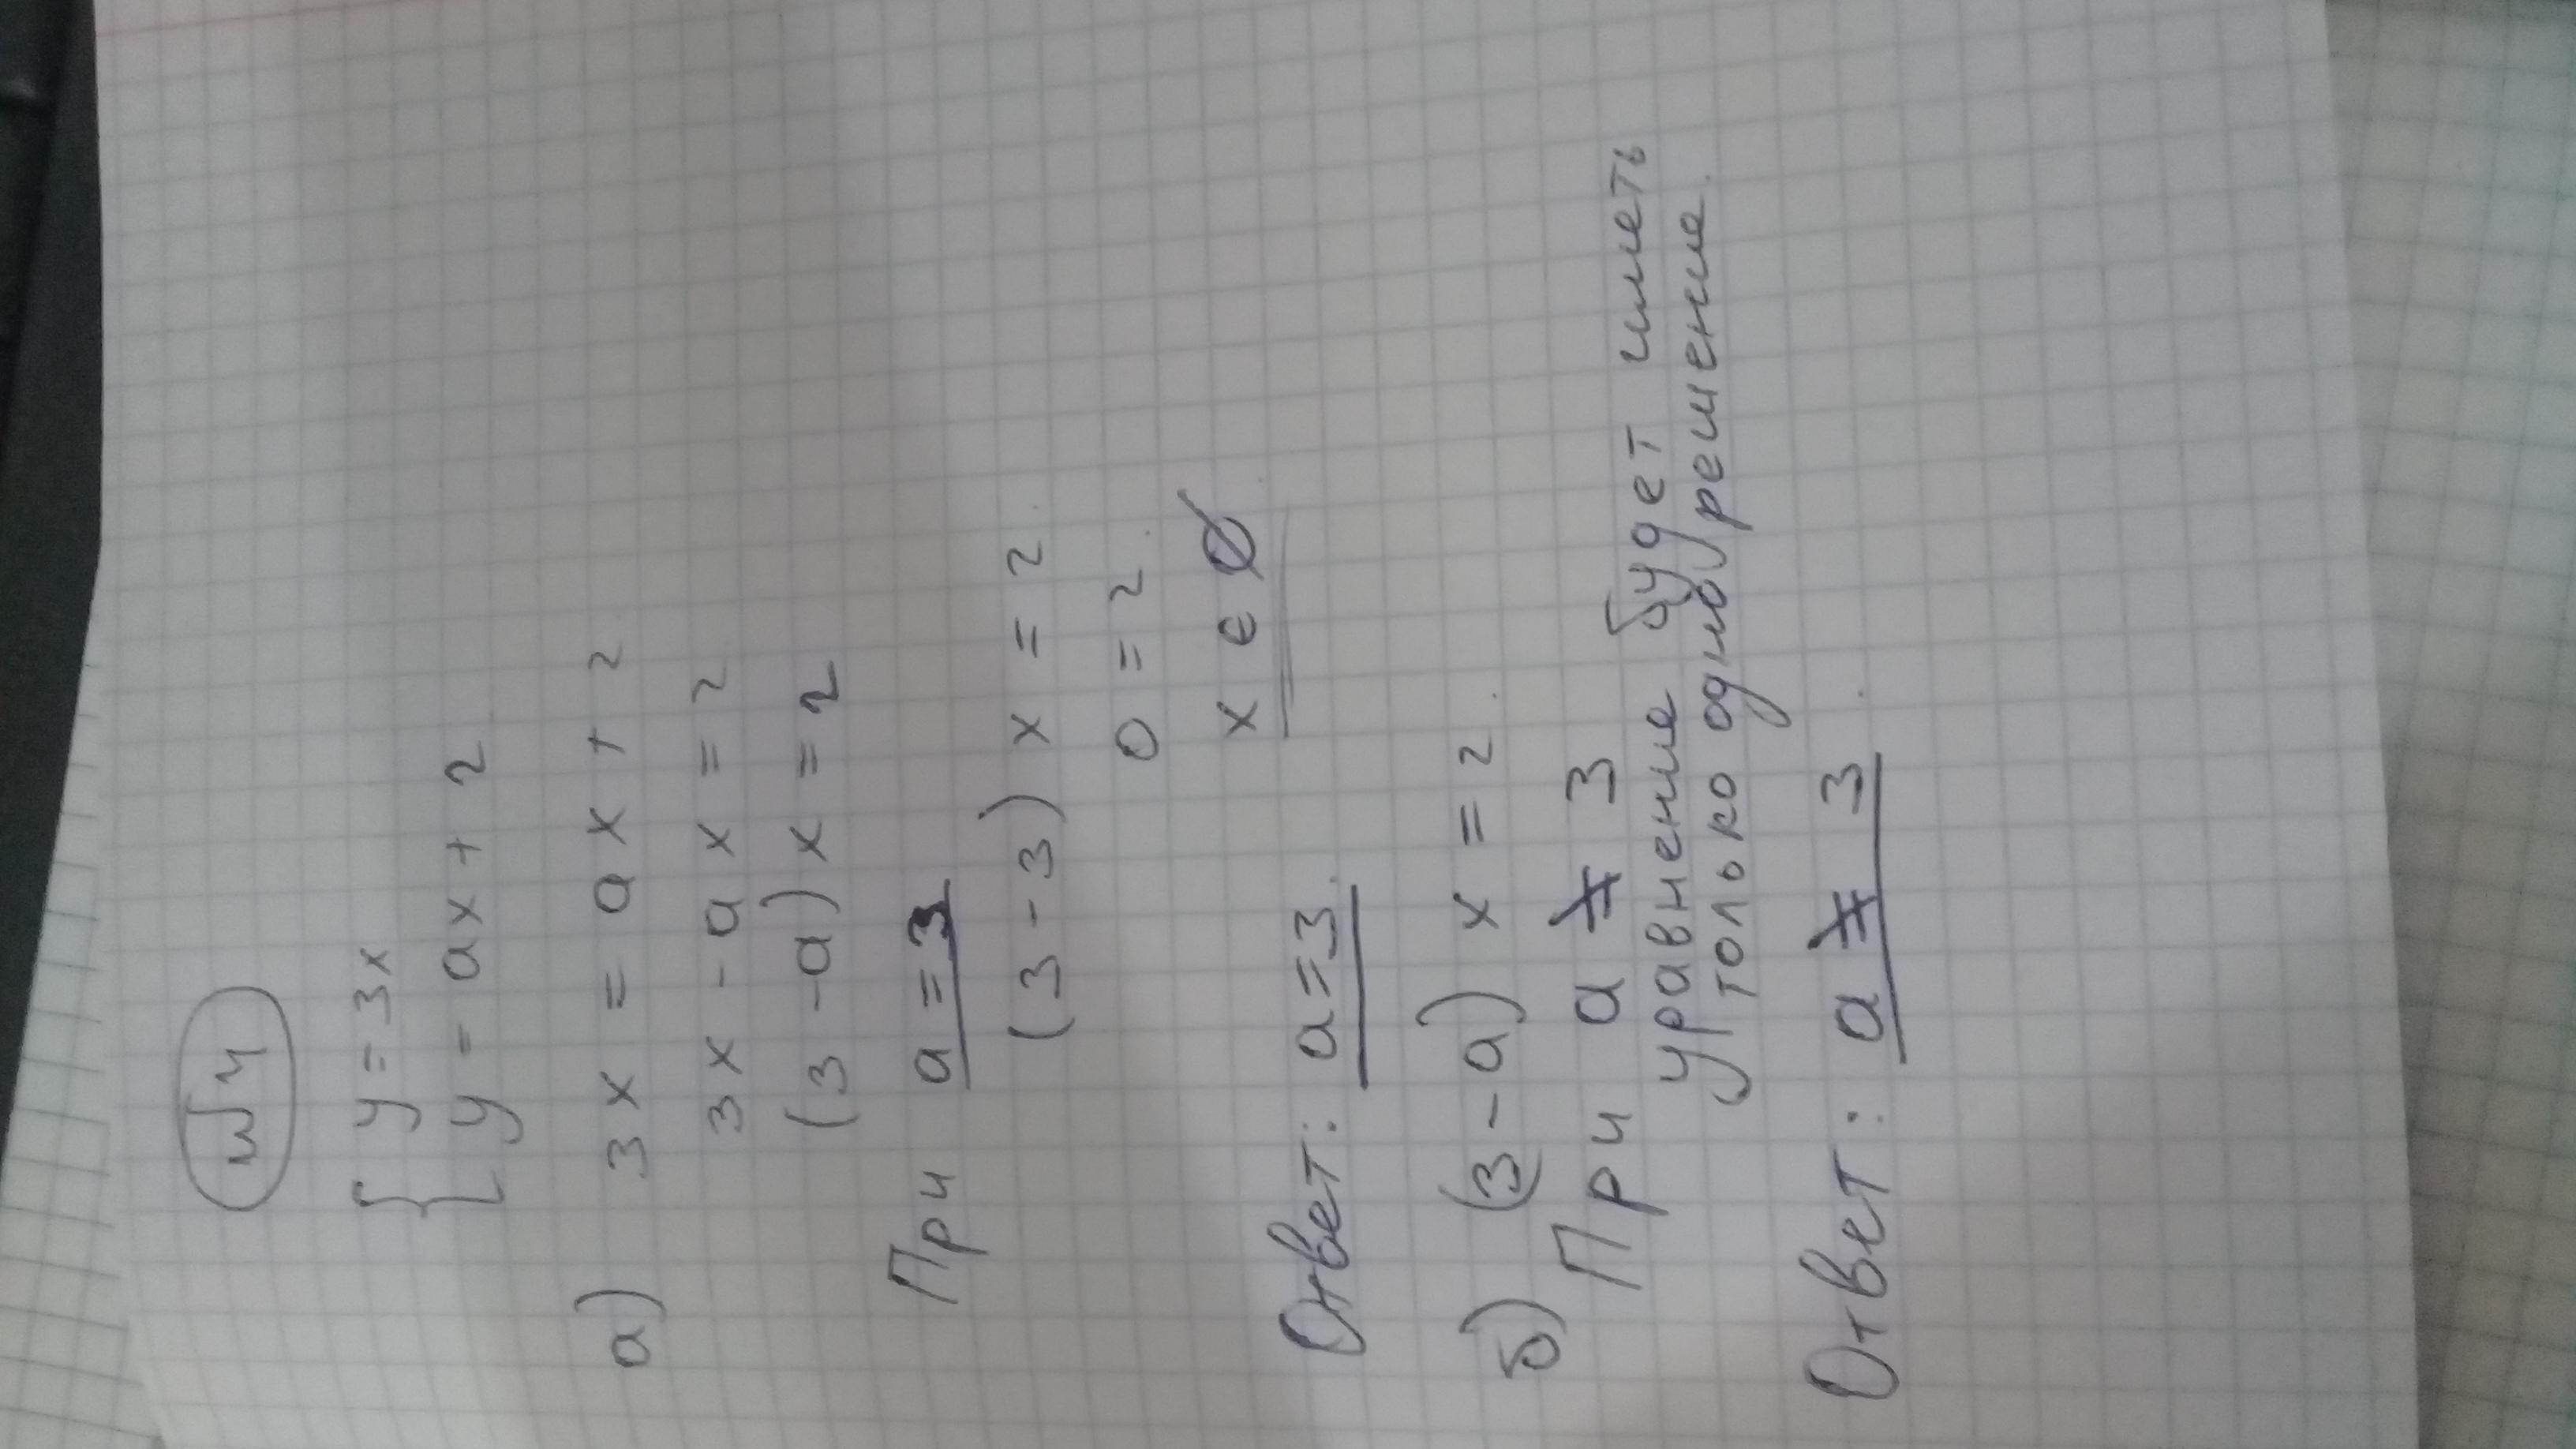 №4
{ y = 3x
y = ax + 2
а) 3x = ax + 2
3x - ax = 2
(3 - a) x = 2
При a = 3
(3 - 3) x = 2.
0 = 2.
x ∈ ∅.
Ответ: a = 3.
б) (3 - a) x = 2.
При a ≠ 3
уравнение будет иметь
только одно решение.
Ответ: a ≠ 3.